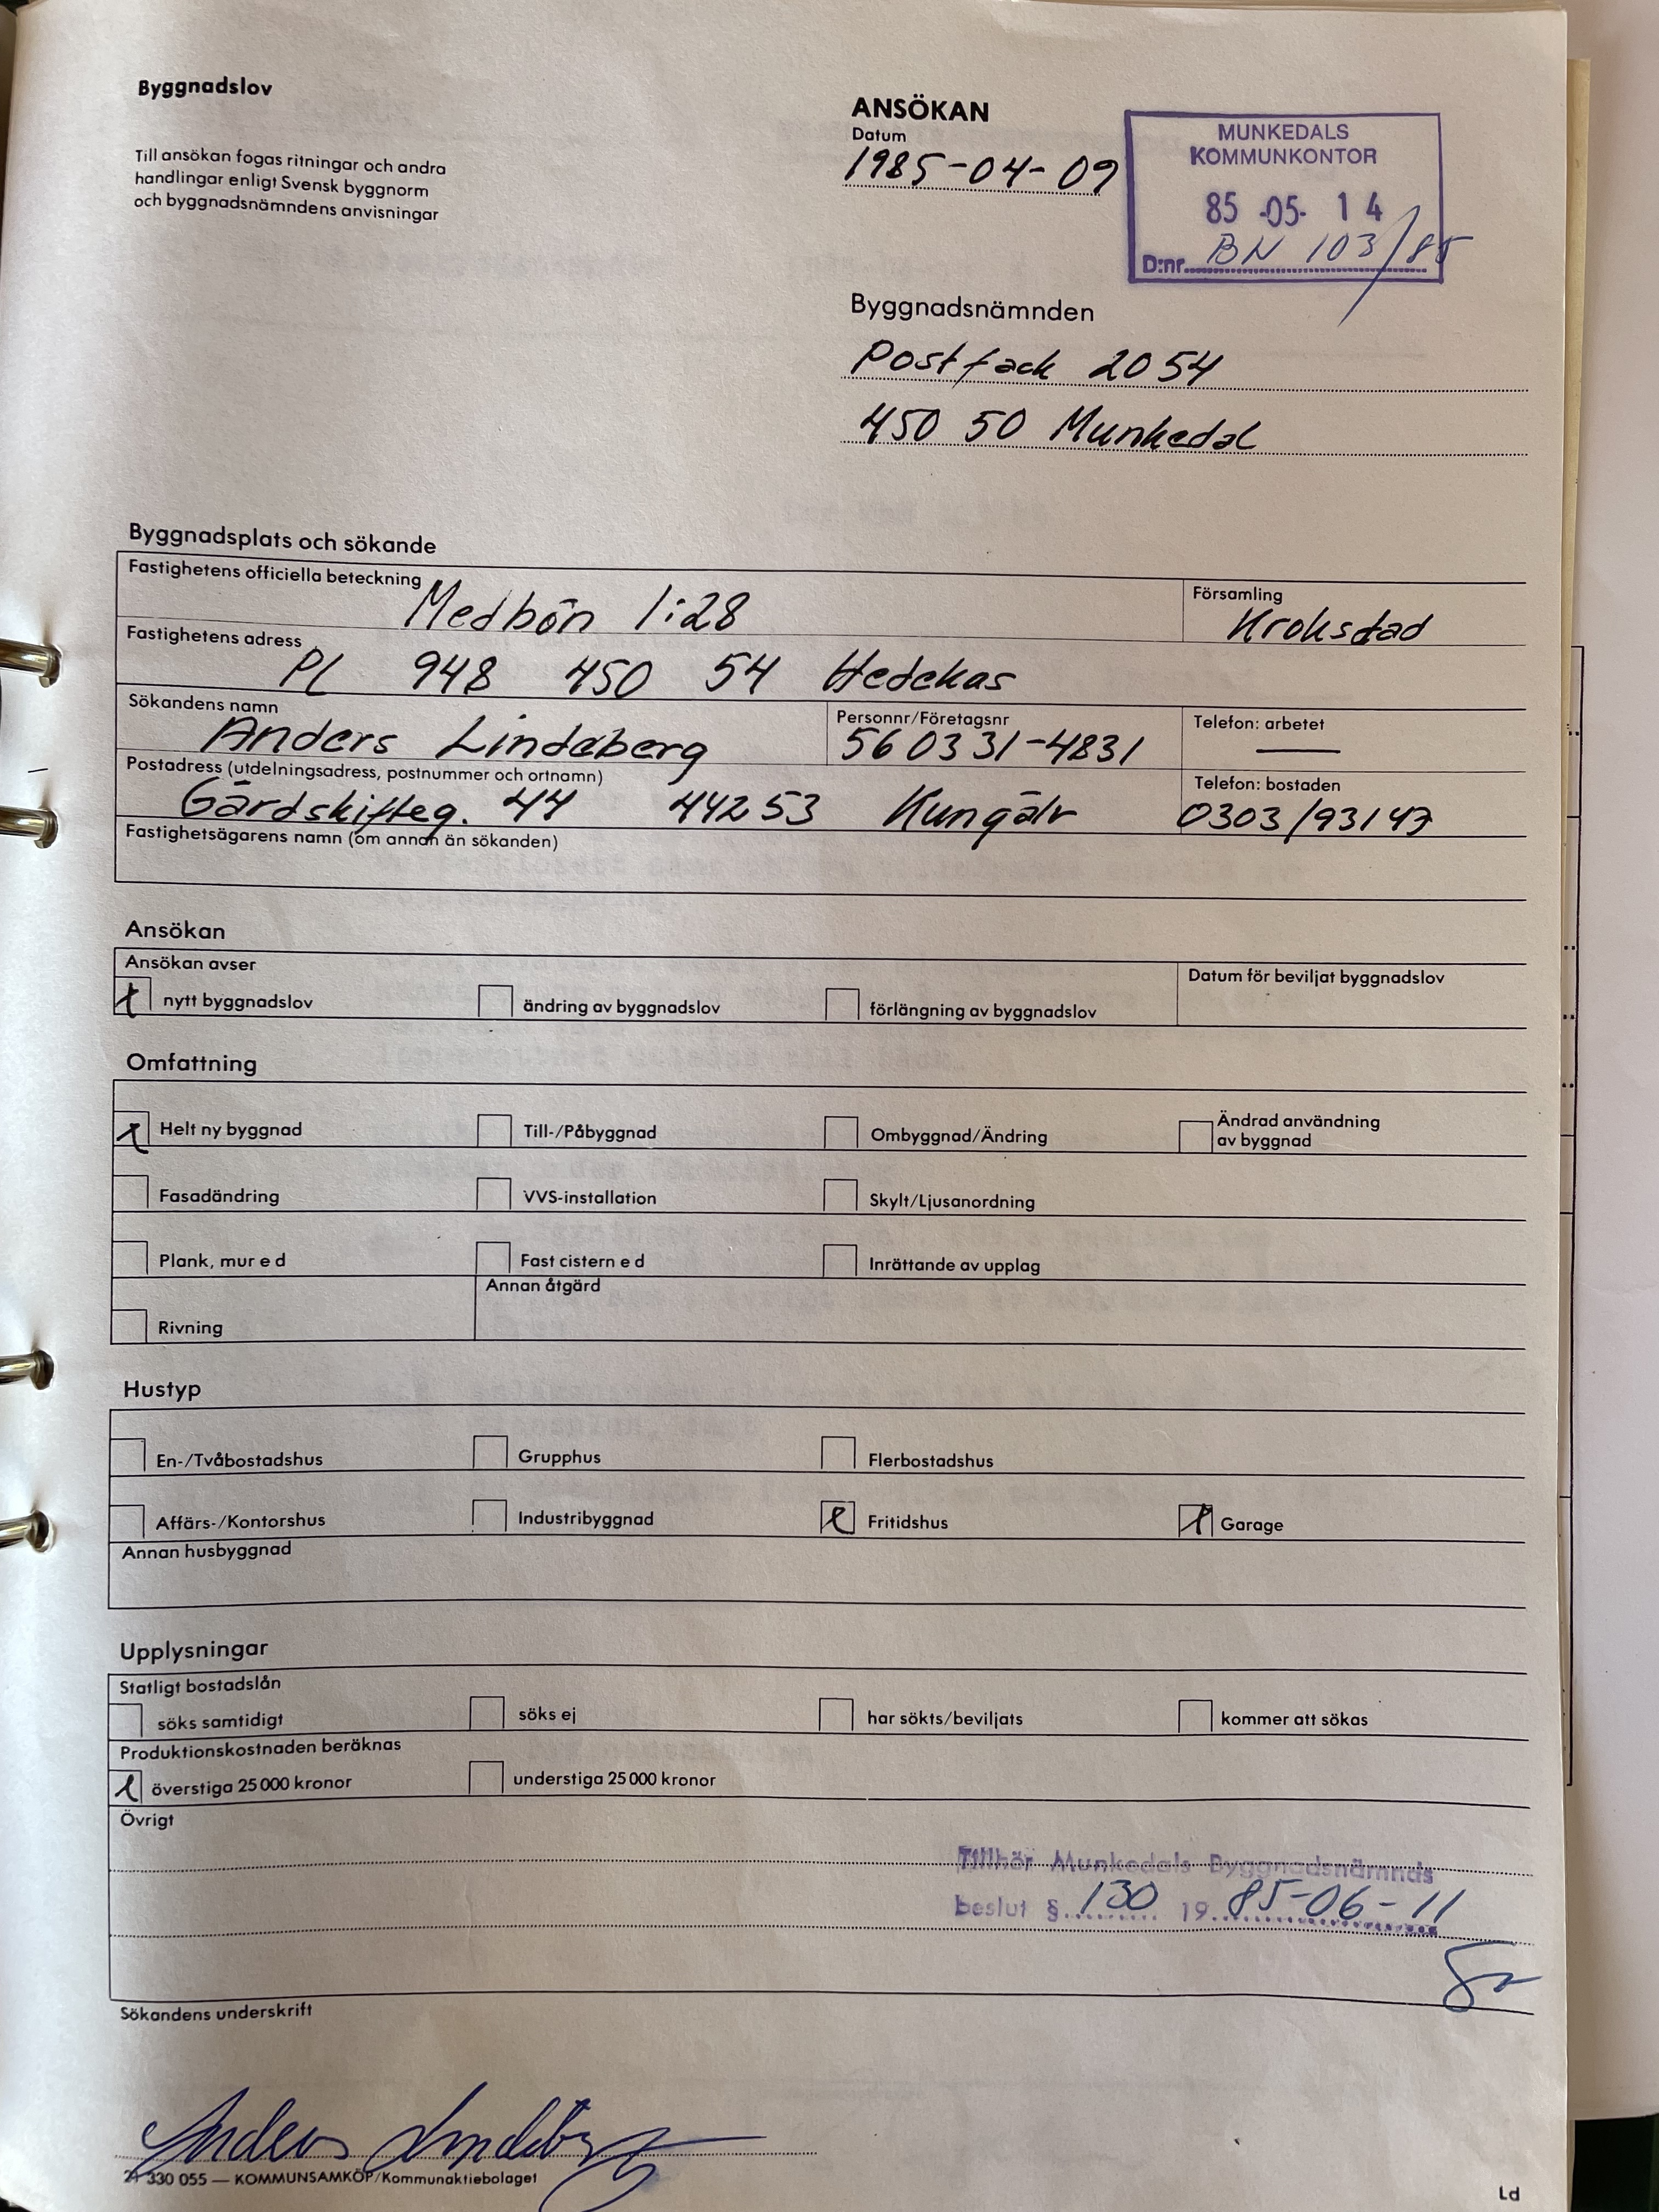 Byggnadslov
Till ansökan fogas ritningar och andra
handlingar enligt Svensk byggnorm
och byggnadsnämndens anvisningar
ANSÖKAN
Datum
1985-04-09
MUNKEDALS
KOMMUNKONTOR
85 -05- 14
D:nr BN 103/85
Byggnadsnämnden
Postfack 2054
450 50 Munkedal
Byggnadsplats och sökande
Fastighetens officiella beteckning Medbön 1:28
Församling
Krokstad
Fastighetens adress
PL 948 450 54 Hedekas
Sökandens namn
Anders Lindeberg
Personnr/Företagsnr
560331-4831
Telefon: arbetet
—
Postadress (utdelningsadress, postnummer och ortnamn)
Gärdskifteg. 44 44253 Kungälv
Telefon: bostaden
0303/93147
Fastighetsägarens namn (om annan än sökanden)
Ansökan
Ansökan avser
nytt byggnadslov ändring av byggnadslov förlängning av byggnadslov
Datum för beviljat byggnadslov
Omfattning
Helt ny byggnad Till-/Påbyggnad Ombyggnad/Ändring Ändrad användning
av byggnad
Fasadändring VVS-installation Skylt/Ljusanordning
Plank, mur e d Fast cistern e d Inrättande av upplag
Annan åtgärd
Rivning
Hustyp
En-/Tvåbostadshus Grupphus Flerbostadshus
Affärs-/Kontorshus Industribyggnad Fritidshus Garage
Annan husbyggnad
Upplysningar
Statligt bostadslån
söks samtidigt söks ej har sökts/beviljats kommer att sökas
Produktionskostnaden beräknas
överstiga 25 000 kronor understiga 25 000 kronor
Övrigt
Tillhör Munkedals Byggnadsnämnds
beslut §. 130 19. 85-06-11
Sökandens underskrift
Anders Lindeberg
21 330 055 — KOMMUNSAMKÖP/Kommunaktiebolaget
Ld